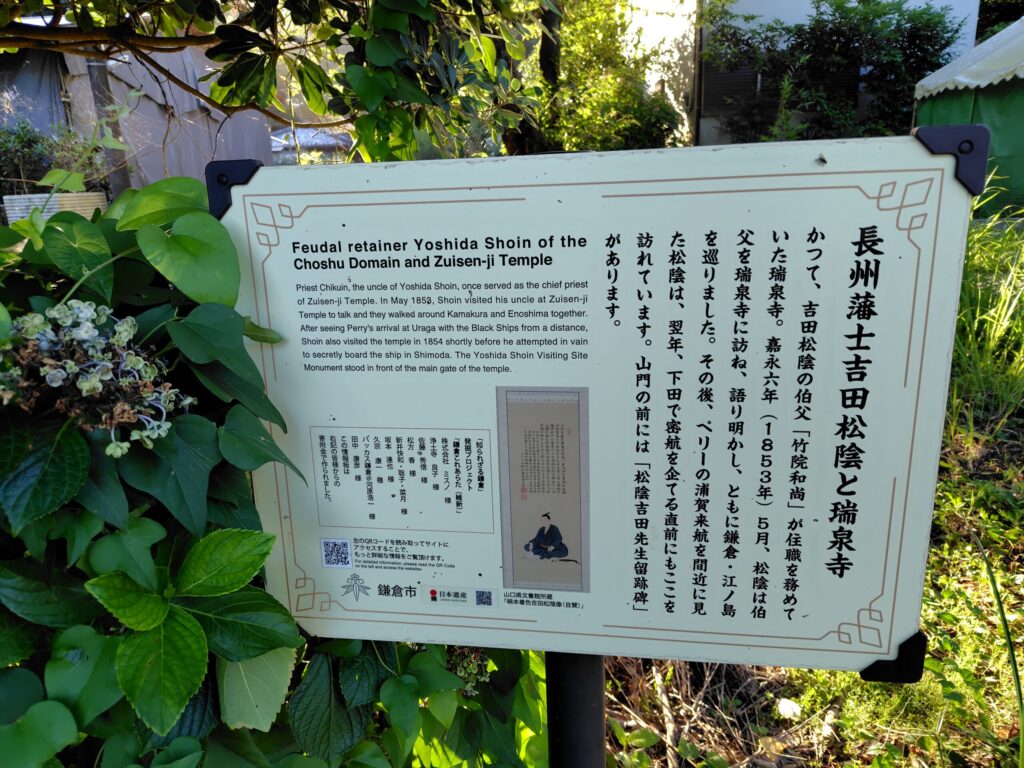 長州藩士吉田松陰と瑞泉寺
かつて、吉田松陰の伯父「竹院和尚」が住職を務めて
いた瑞泉寺。嘉永六年（1853年）5月、松陰は伯
父を瑞泉寺に訪ね、語り明かし、ともに鎌倉・江ノ島
を巡りました。その後、ペリーの浦賀来航を間近に見
た松陰は、翌年、下田で密航を企てる直前にもここを
訪れています。山門の前には「松陰吉田先生留跡碑」
があります。
Feudal retainer Yoshida Shoin of the
Choshu Domain and Zuisen-ji Temple
Priest Chikuin, the uncle of Yoshida Shoin, once served as the chief priest
of Zuisen-ji Temple. In May 1853, Shoin visited his uncle at Zuisen-ji
Temple to talk and they walked around Kamakura and Enoshima together.
After seeing Perry's arrival at Uraga with the Black Ships from a distance,
Shoin also visited the temple in 1854 shortly before he attempted in vain
to secretly board the ship in Shimoda. The Yoshida Shoin Visiting Site
Monument stood in front of the main gate of the temple.
「知られざる鎌倉」
発掘プロジェクト
「鎌倉これあらた【維新】」
株式会社 ミスノ 様
浄土寺 良子 様
佐藤 秀信 様
松方 香 様
新井快和・聡子・菜月 様
坂本 達也 様
久宗 康一 様
バッカス鎌倉@河原浩一 様
田中 康彦 様
この情報板は
右記の皆様からの
寄附金で作られました。
左のQRコードを読み取ってサイトに
アクセスすることで、
もっと詳細な情報をご覧頂けます。
For detailed information, please read the QR Code
on the left and access the website
鎌倉市
日本遺産
JAPAN HERITAGE
山口県文書館所蔵
「絹本着色吉田松陰像（自賛）」